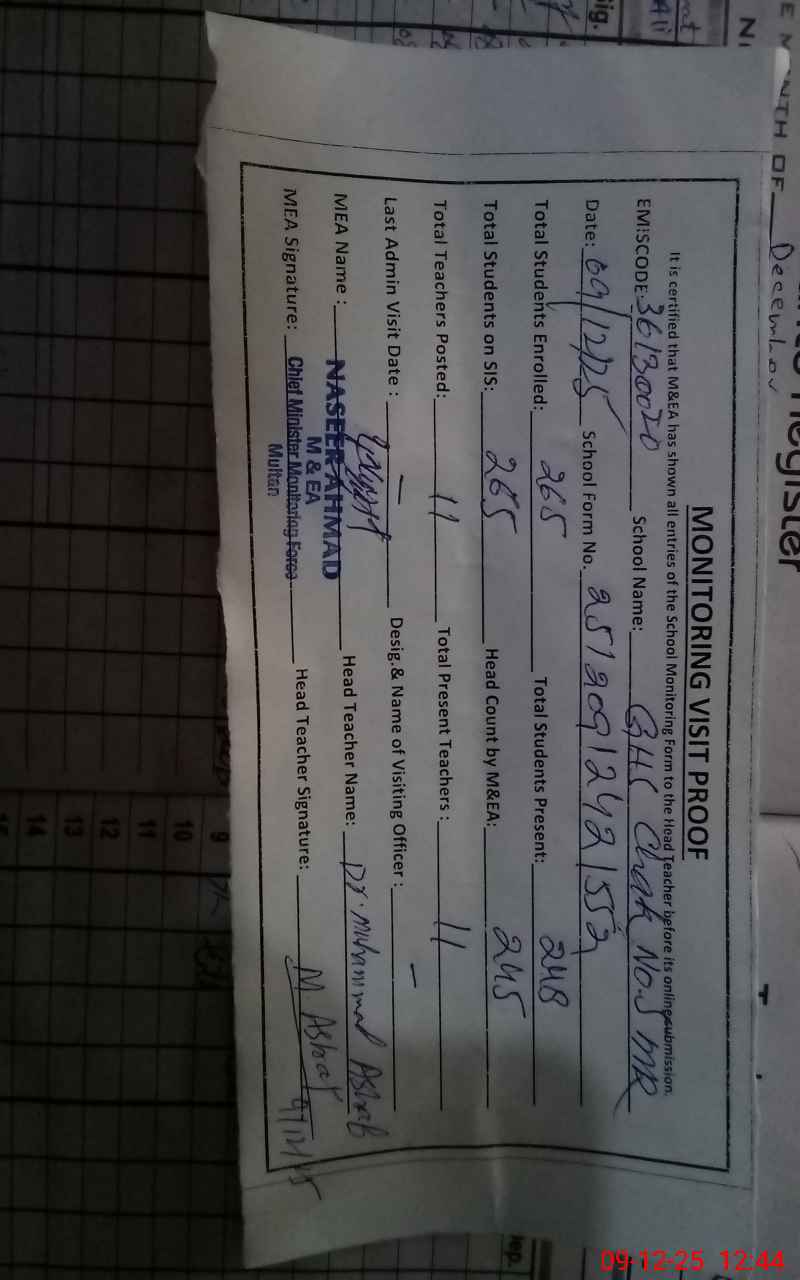 MONITORING VISIT PROOF
It is certified that M&EA has shown all entries of the School Monitoring Form to the Head Teacher before its online submission.
EMISCODE: 36130020 School Name: GHS Chak No.5 MR
Date: 09/12/25 School Form No. 2512091242155
Total Students Enrolled: 265 Total Students Present: 248
Total Students on SIS: 265 Head Count by M&EA: 245
Total Teachers Posted: 11 Total Present Teachers : 11
Last Admin Visit Date : — Desig.& Name of Visiting Officer : —
MEA Name : NASEER AHMAD Head Teacher Name: Dr. Muhammad Ashraf
M & EA
MEA Signature: Chief Minister Monitoring Force Head Teacher Signature: M. Ashraf
Multan
9/12/25
E MONTH OF December
Register
Sig.
9
10
11
12
13
14
15
09-12-25 12:44